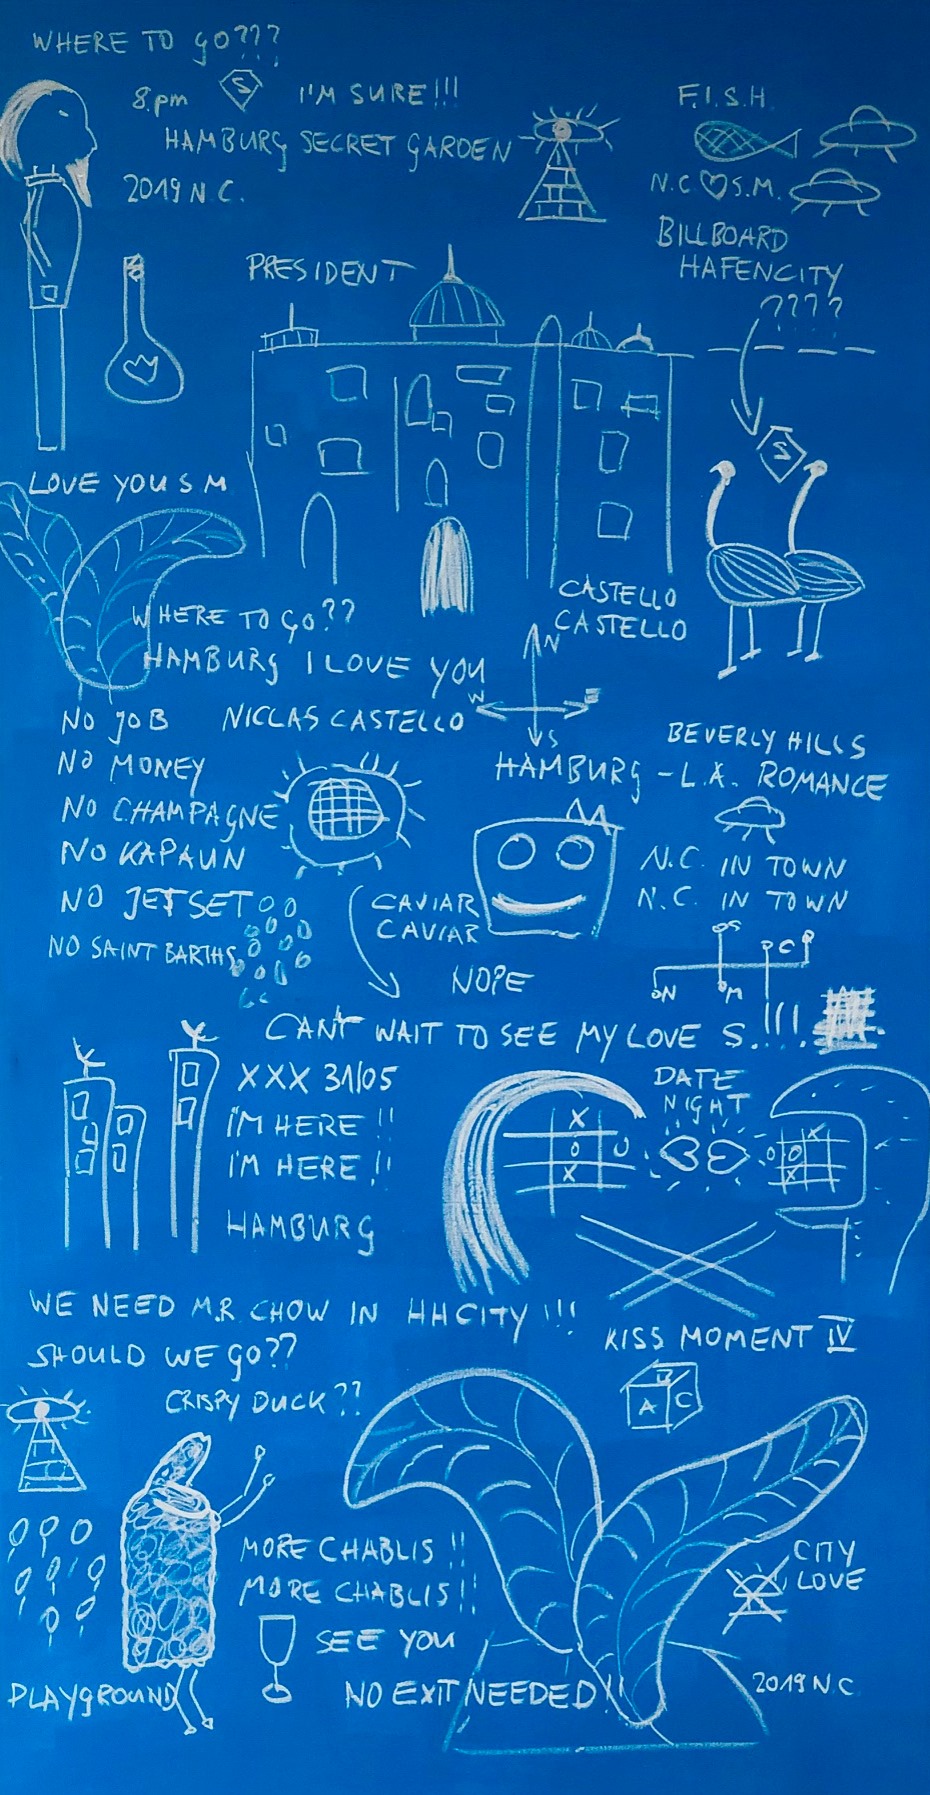 WHERE TO GO???
8.pm S I'M SURE!!!
HAMBURG SECRET GARDEN
2019 N.C.
F.I.S.H.
N.C ♡ S.M.
BILLBOARD
HAFENCITY
????
PRESIDENT
S
LOVE YOU S M
CASTELLO
CASTELLO
WHERE TO GO??
HAMBURG I LOVE YOU
N
W E
S
NO JOB
NICLAS CASTELLO
NO MONEY
NO CHAMPAGNE
NO KAPAUN
NO JETSET
NO SAINT BARTHS
BEVERLY HILLS
HAMBURG - L.A. ROMANCE
N.C. IN TOWN
N.C. IN TOWN
CAVIAR
CAVIAR
NOPE
S
C
N M
CAN'T WAIT TO SEE MY LOVE S.!!!
XXX 31/05
I'M HERE !!
I'M HERE !!
HAMBURG
DATE
NIGHT
X
O O
X
X
O O
X
WE NEED M.R. CHOW IN HHCITY !!!
SHOULD WE GO??
CRISPY DUCK??
KISS MOMENT IV
A C
MORE CHABLIS !!
MORE CHABLIS!!
SEE YOU
NO EXIT NEEDED
CITY
LOVE
PLAYGROUND
2019 N.C